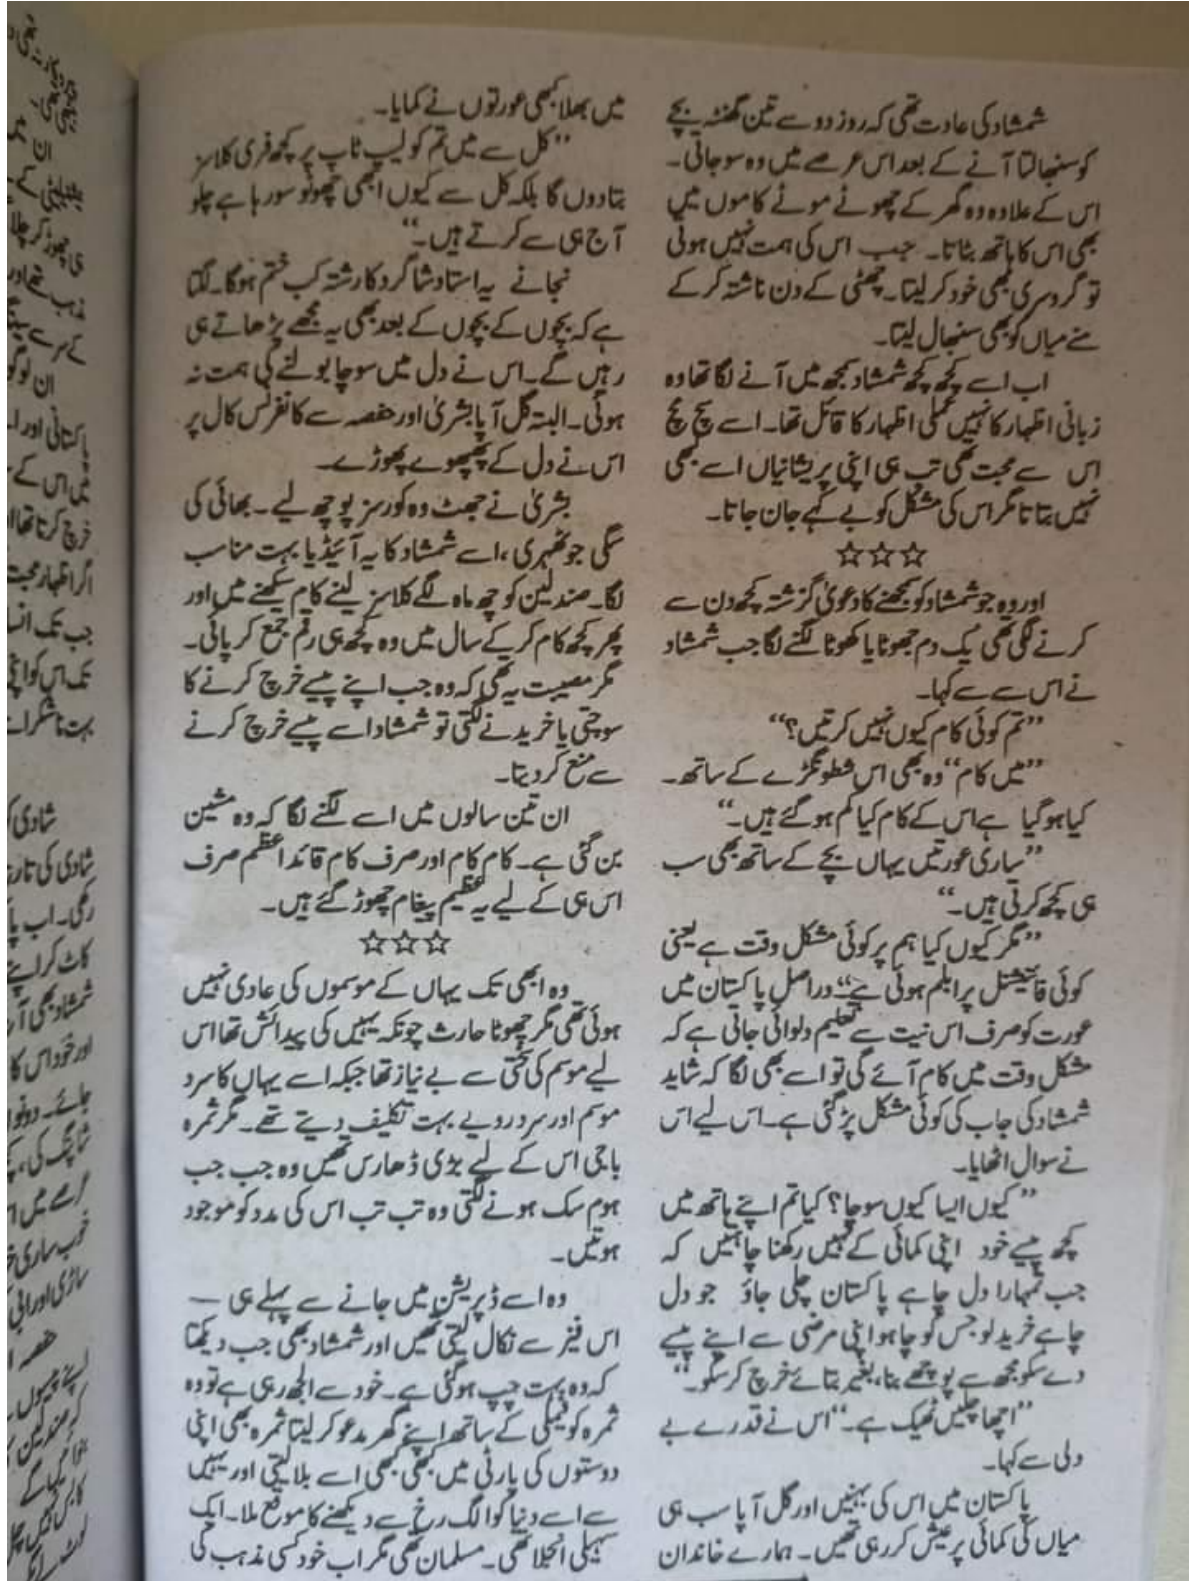 شمشاد کی عادت تھی کہ روز دو سے تین گھنٹہ بچے
کو سنبھالتا آنے کے بعد اس عرصے میں وہ سو جاتی۔
اس کے علاوہ وہ گھر کے چھوٹے موٹے کاموں میں
بھی اس کا ہاتھ بٹاتا۔ جب اس کی ہمت نہیں ہوتی
تو گروسری بھی خود کر لیتا۔ چھٹی کے دن ناشتہ کر کے
منے میاں کو بھی سنبھال لیتا۔
اب اسے کچھ کچھ شمشاد سمجھ میں آنے لگا تھا وہ
زبانی اظہار کا نہیں عملی اظہار کا قائل تھا۔ اسے سچ مچ
اس سے محبت تھی تب ہی اپنی پریشانیاں اسے کبھی
نہیں بتاتا مگر اس کی مشکل کو بے کہے جان جاتا۔
☆☆☆
اور وہ جو شمشاد کو سمجھنے کا دعویٰ گزشتہ کچھ دن سے
کرنے لگی تھی یک دم جھوٹا یا کھوٹا لگنے لگا جب شمشاد
نے اس سے سے کہا۔
”تم کوئی کام کیوں نہیں کرتیں؟“
”میں کام“ وہ بھی اس شطونگڑے کے ساتھ۔
کیا ہو گیا ہے اس کے کام کیا کم ہو گئے ہیں۔“
”ساری عورتیں یہاں بچے کے ساتھ بھی سب
ہی کچھ کرتی ہیں۔“
”مگر کیوں کیا ہم پر کوئی مشکل وقت ہے یعنی
کوئی فائینشل پرابلم ہوئی ہے“ دراصل پاکستان میں
عورت کو صرف اس نیت سے تعلیم دلوائی جاتی ہے کہ
مشکل وقت میں کام آئے گی تو اسے بھی لگا کہ شاید
شمشاد کی جاب کی کوئی مشکل پڑ گئی ہے۔ اس لیے اس
نے سوال اٹھایا۔
”کیوں ایسا کیوں سوچا؟ کیا تم اپنے ہاتھ میں
کچھ پیسے خود اپنی کمائی کے نہیں رکھنا چاہتیں کہ
جب تمہارا دل چاہے پاکستان چلی جاؤ جو دل
چاہے خرید لو جس کو چاہو اپنی مرضی سے اپنے پیسے
دے سکو مجھ سے پوچھے بنا، بغیر بتائے خرچ کر سکو۔“
”اچھا چلیں ٹھیک ہے۔“ اس نے قدرے بے
دلی سے کہا۔
پاکستان میں اس کی بہنیں اور گل آپا سب ہی
میاں کی کمائی پر عیش کر رہی تھیں۔ ہمارے خاندان
میں بھلا کبھی عورتوں نے کمایا۔
”کل سے میں تم کو لیپ ٹاپ پر کچھ فری کلاسز
بتا دوں گا بلکہ کل سے کیوں ابھی چھوٹو سو رہا ہے چلو
آج ہی سے کرتے ہیں۔“
نجانے یہ استاد شاگرد کا رشتہ کب ختم ہو گا۔ لگتا
ہے کہ بچوں کے بچوں کے بعد بھی یہ مجھے پڑھاتے ہی
رہیں گے۔ اس نے دل میں سوچا بولنے کی ہمت نہ
ہوئی۔ البتہ گل آپا بشریٰ اور حفصہ سے کانفرنس کال پر
اس نے دل کے پھپھولے پھوڑے۔
بشریٰ نے جھٹ وہ کورسز پوچھ لیے۔ بھائی کی
سگی جو ٹھہری، اسے شمشاد کا یہ آئیڈیا بہت مناسب
لگا۔ صندلین کو چھ ماہ لگے کلاسز لینے کام سیکھنے میں اور
پھر کچھ کام کر کے سال میں وہ کچھ ہی رقم جمع کر پائی۔
مگر مصیبت یہ تھی کہ وہ جب اپنے پیسے خرچ کرنے کا
سوچتی یا خریدنے لگتی تو شمشاد اسے پیسے خرچ کرنے
سے منع کر دیتا۔
ان تین سالوں میں اسے لگنے لگا کہ وہ مشین
بن گئی ہے۔ کام کام اور صرف کام قائد اعظم صرف
اس ہی کے لیے یہ عظیم پیغام چھوڑ گئے ہیں۔
☆☆☆
وہ ابھی تک یہاں کے موسموں کی عادی نہیں
ہوئی تھی مگر چھوٹا حارث چونکہ یہیں کی پیدائش تھا اس
لیے موسم کی سختی سے بے نیاز تھا جبکہ اسے یہاں کا سرد
موسم اور سرد رویے بہت تکلیف دیتے تھے۔ مگر ثمرہ
باجی اس کے لیے بڑی ڈھارس تھیں وہ جب جب
ہوم سک ہونے لگتی وہ تب تب اس کی مدد کو موجود
ہوتیں۔
وہ اسے ڈپریشن میں جانے سے پہلے ہی —
اس فیز سے نکال لیتی تھیں اور شمشاد بھی جب دیکھتا
کہ وہ بہت چپ ہو گئی ہے۔ خود سے الجھ رہی ہے تو وہ
ثمرہ کو فیملی کے ساتھ اپنے گھر مدعو کر لیتا ثمرہ بھی اپنی
دوستوں کی پارٹی میں کبھی کبھی اسے بلا لیتی اور یہیں
سے اسے دنیا کو الگ رخ سے دیکھنے کا موقع ملا۔ ایک
سہیلی انجیلا تھی۔ مسلمان تھی مگر اب خود کسی مذہب کی